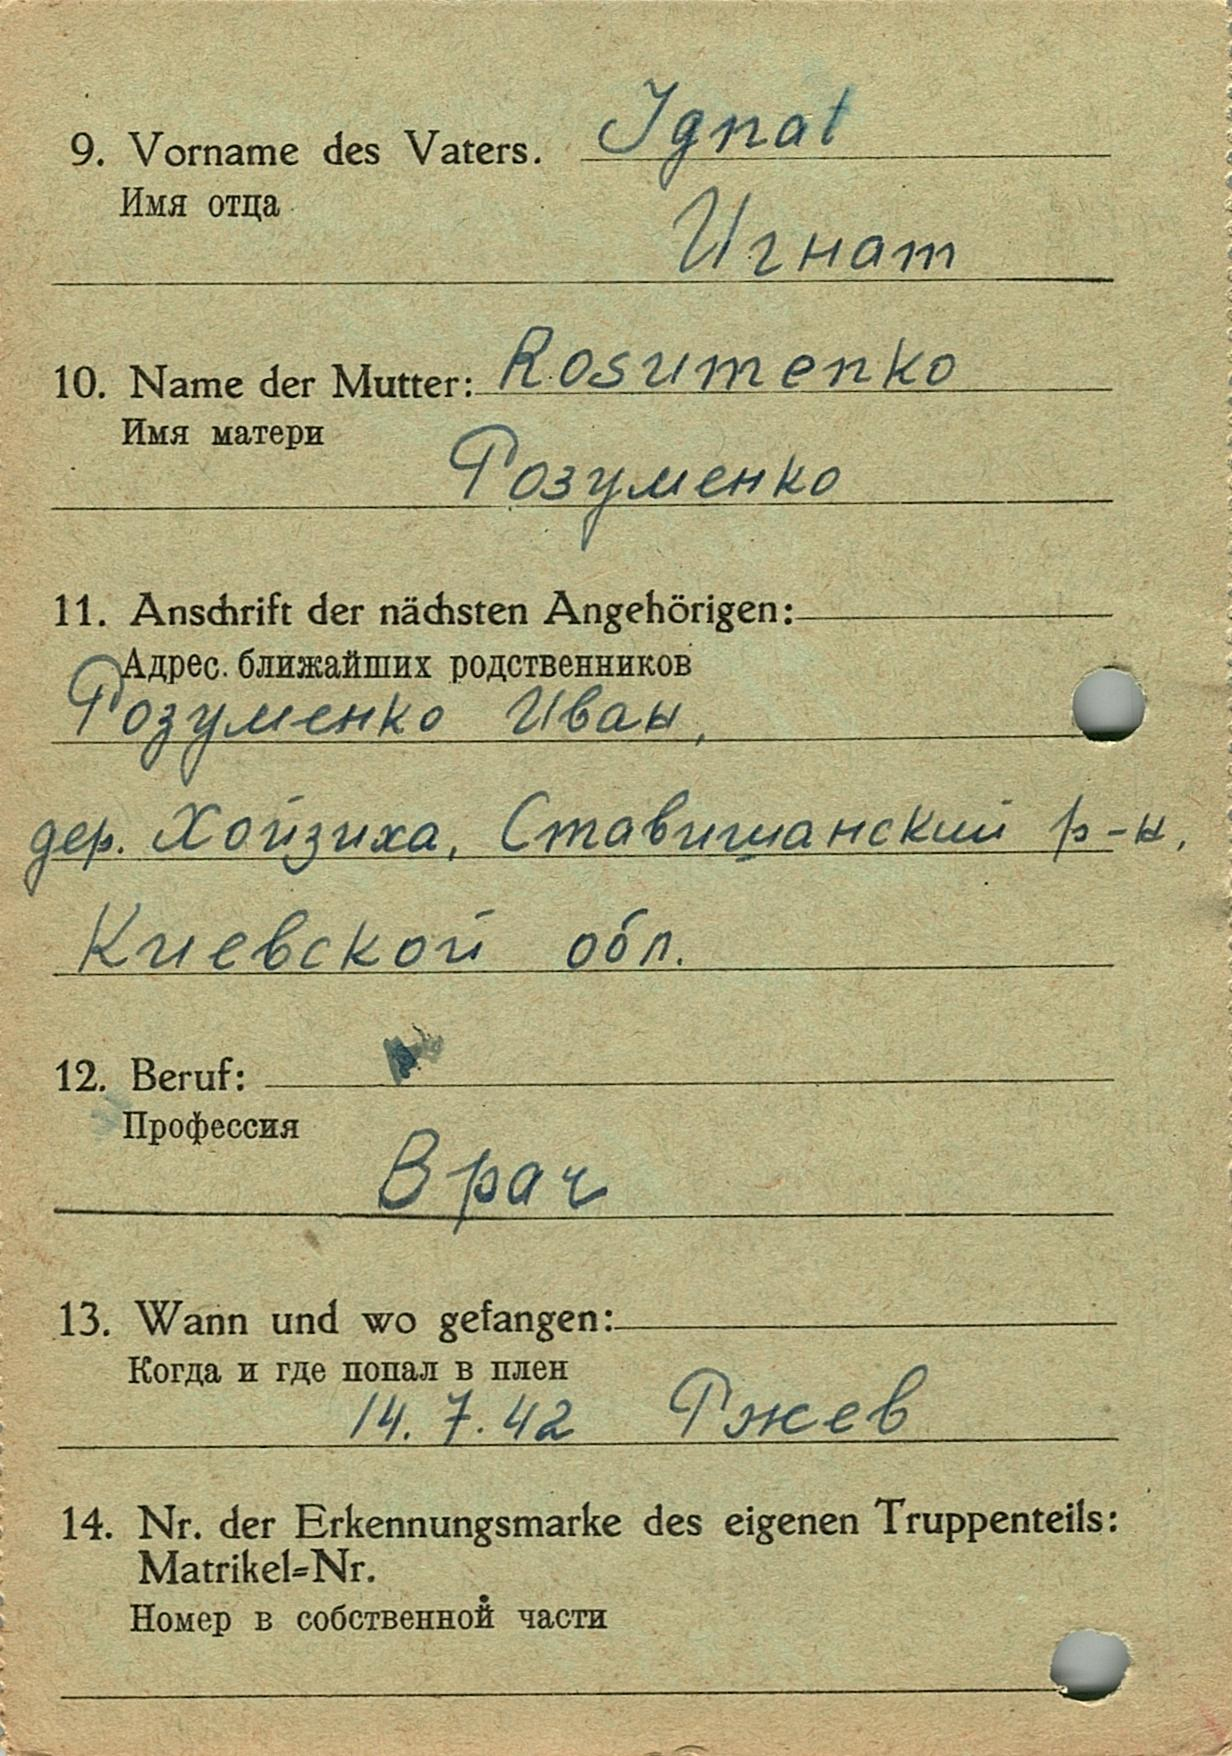 9. Vorname des Vaters. Ignat
Имя отца
Игнат
10. Name der Mutter: Rosumenko
Имя матери
Розуменко
11. Anschrift der nächsten Angehörigen:
Адрес. ближайших родственников
Розуменко Иван,
дер. Хойзиха, Ставишанский р-н,
Киевской обл.
12. Beruf:
Профессия
Врач
13. Wann und wo gefangen:
Когда и где попал в плен
14. 7. 42 Ржев
14. Nr. der Erkennungsmarke des eigenen Truppenteils:
Matrikel=Nr.
Номер в собственной части